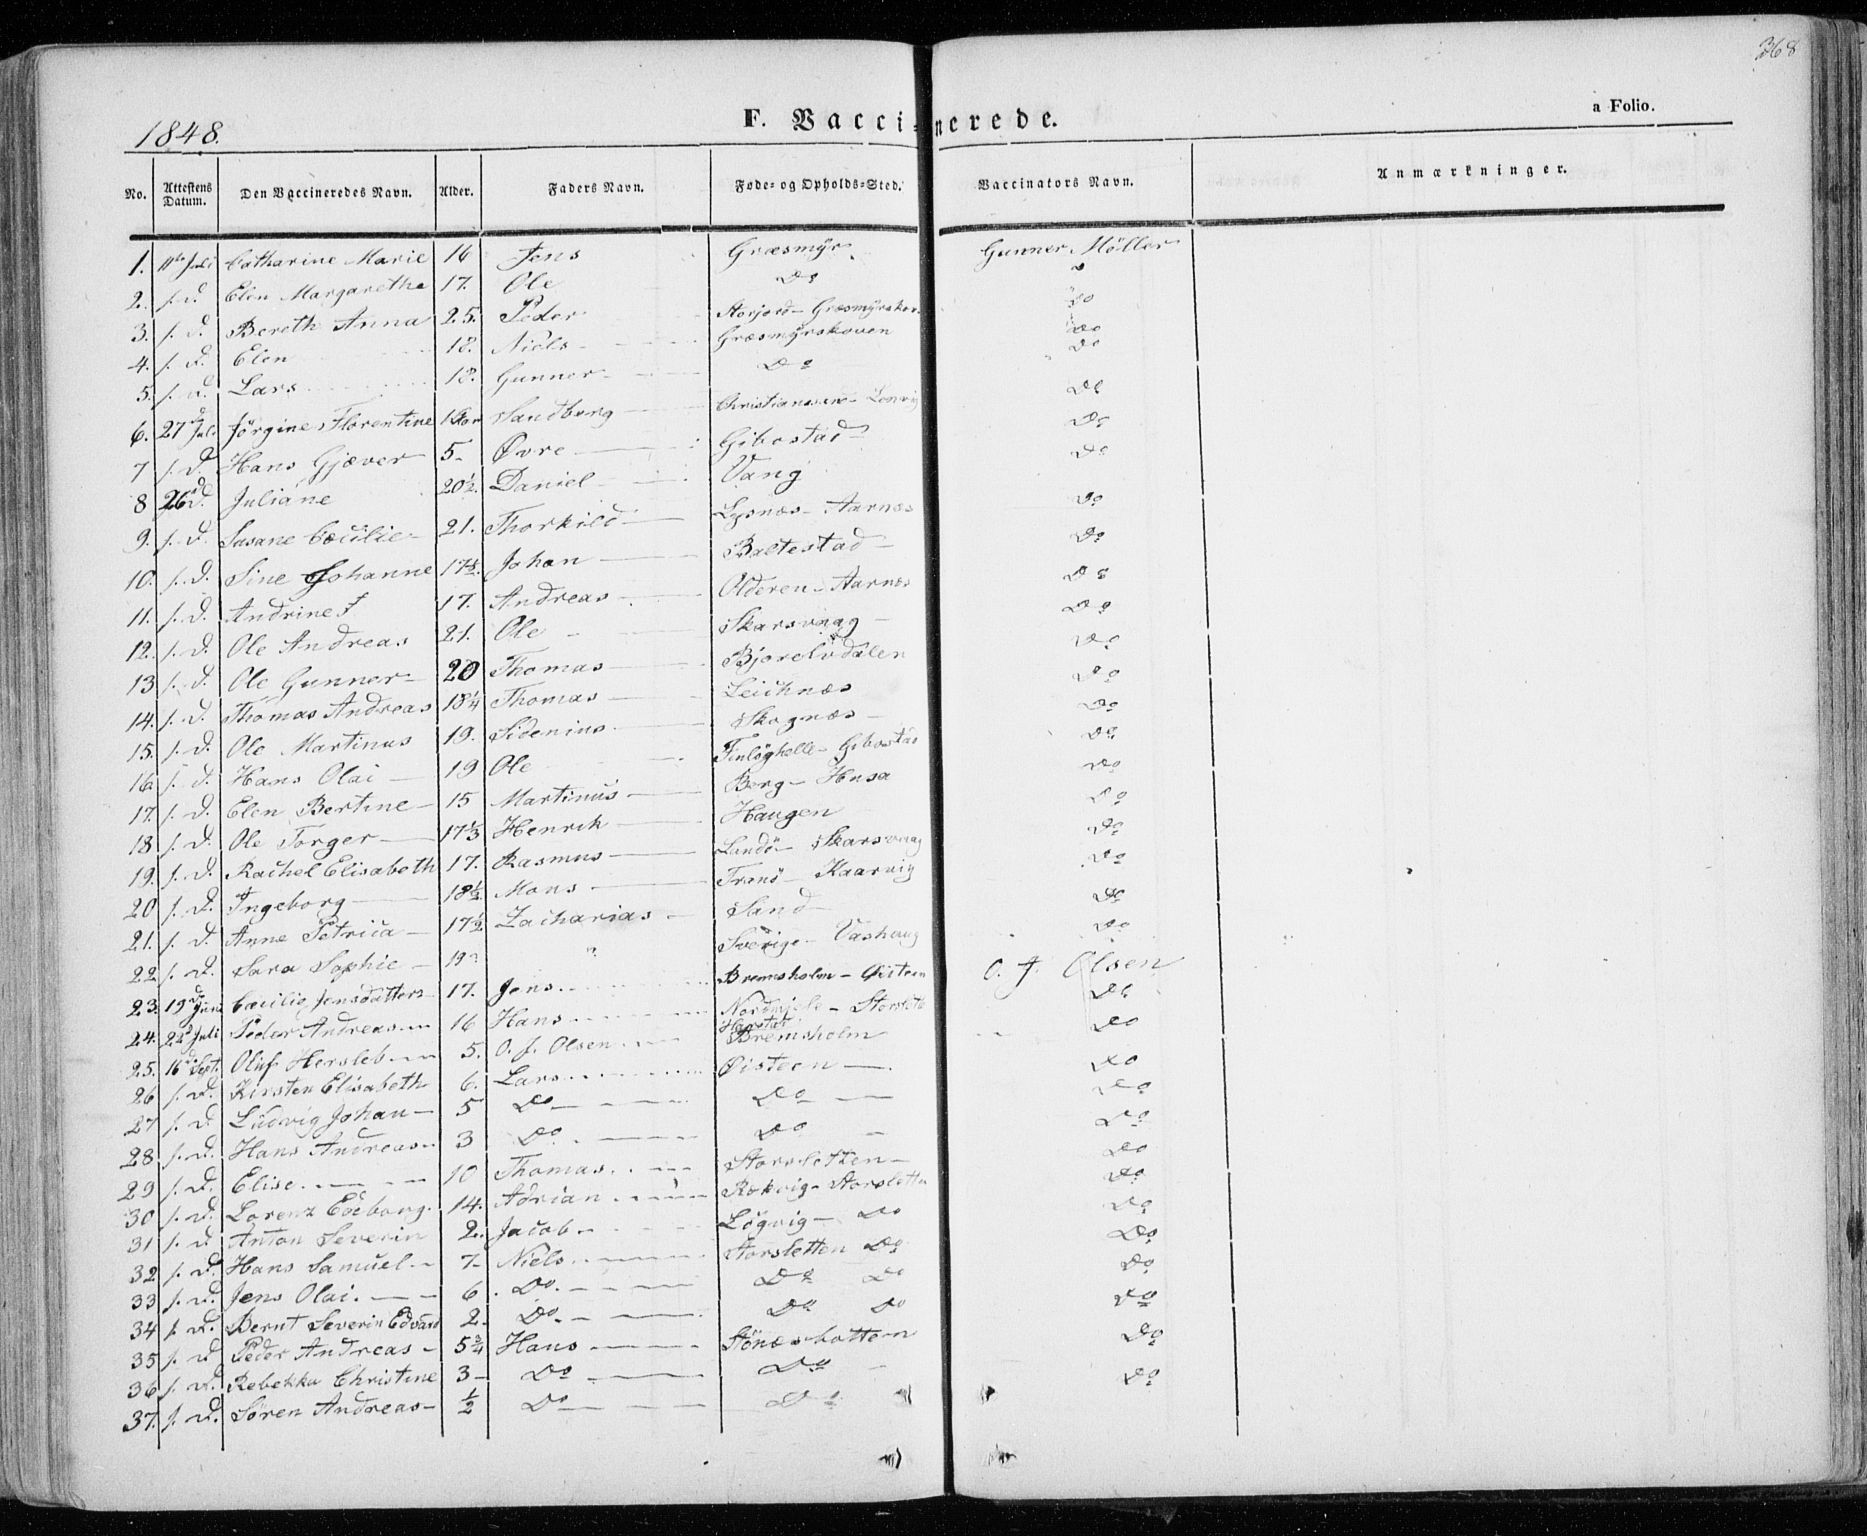 368
a Folio.
1848.
F. Vacci-nerede.
No. Attestens Datum. Den Vaccineredes Navn. Alder. Faders Navn. Føde- og Opholds-Sted. Vaccinators Navn. Anmærkninger.
1. 11te Juli Catharine Marie 16 Jens Græsmyr Gunner Möller
2. s. d. Elen Margarethe 17. Ole Do
3. s. d. Bereth Anna 25. Peder Do
4. s. d. Elen 18. Niels Græsmyrskoven Do
5. s. d. Lars 18. Gunner Do Do
6. 27d Juli Jörgine Florentine Sandberg Do
7 s. d. Hans Gjæver 5 Øvre Gibostad Do
8 26d. Juliane 20½. Daniel Vang Do
9. s. d. Susane Cæcilie 21. Thorkild Lysnæs - Aarnæs Do
10. s. d. Sine Johanne 17½. Johan Baltestad Do
11. s. d. Andrine J 17. Andreas Olderen - Aarnæs Do
12. s. d. Ole Andreas 21. Ole Skarsvaag Do
13 s. d. Ole Gunner 20 Thomas Bjorelvdalen Do
14. s. d. Thomas Andreas 18¼ Thomas Leichnæs Do
15. s. d. Ole Martinus 19. Sidenius Skognæs Do
16 s. d. Hans Olai 19 Ole Gibostad Do
17. s. d. Elen Bertine 15 Martinus Berg - Do
18 s. d. Ole Torger 17⅓ Henrik Haugen Do
19. s. d. Rachel Elisabeth 17. Rasmus Skarsvaag Do
20 s. d. Ingeborg 18½ Mons Tranö - Kaarvig Do
21. s. d. Anne Petrica 17½ Zacharias Sand Do
22 s. d. Sara Sophie 19 " Sverige - Vashaug Do
23. 19d Juni Cæcilie Jensdatter 17. Jens Bremsholm - Øisteen O. J. Olsen
24. 22d Juli Peder Andreas 16 Hans Nordmjele - Storslett Do
25. 16d Sept. Oluf Hersleb 5. O. J. Olsen Bremsholm Do
26 s. d. Kirsten Elisabeth 6. Lars Øisteen Do
27 s. d. Ludvig Johan 5 Do Do Do
28 s. d. Hans Andreas 3 Do Do Do
29 s. d. Elise 10 Thomas Storsletten Do
30 s. d. Lorenz Edeborg. 14. Adrian Rekvig - Storsletten Do
31 s. d. Anton Severin 2. Jacob Lögvig - Do Do
32 s. d. Hans Samuel 7 Niels Storsletten Do Do
33 s. d. Jens Olai 6 Do Do Do Do
34 s. d. Bernt Severin Edvard 2 Do Do Do Do
35 s. d. Peder Andreas 5¾ Hans Stönæsbotten Do
36 s. d. Rebekka Christine 3 Do Do Do
37. s. d. Søren Andreas ½ Do Do